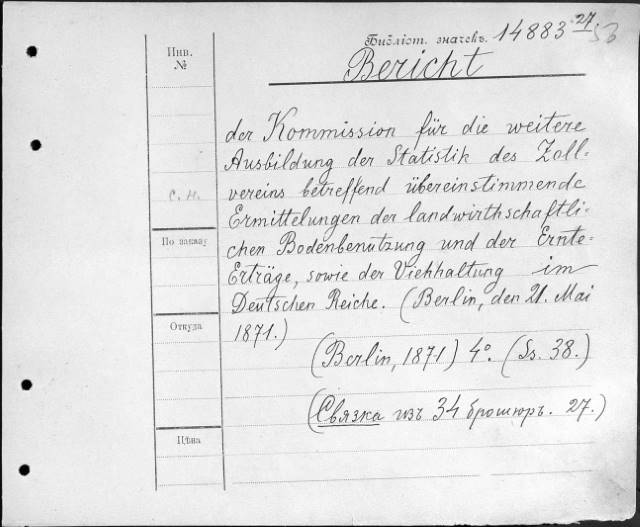 Библіот. значекъ. 14883 27. 53
Bericht
Инв.
№
der Kommission für die weitere
Ausbildung der Statistik des Zoll-
vereins betreffend übereinstimmende
С. Н.
Ermittelungen der landwirthschaftli-
По заказу
chen Bodenbenutzung und der Ernte-
Erträge, sowie der Viehhaltung im
Deutschen Reiche. (Berlin, den 21. Mai
Откуда
1871.)
(Berlin, 1871) 4°. (Ss. 38.)
(Связка изъ 34 брошюръ. 27.)
Цѣна